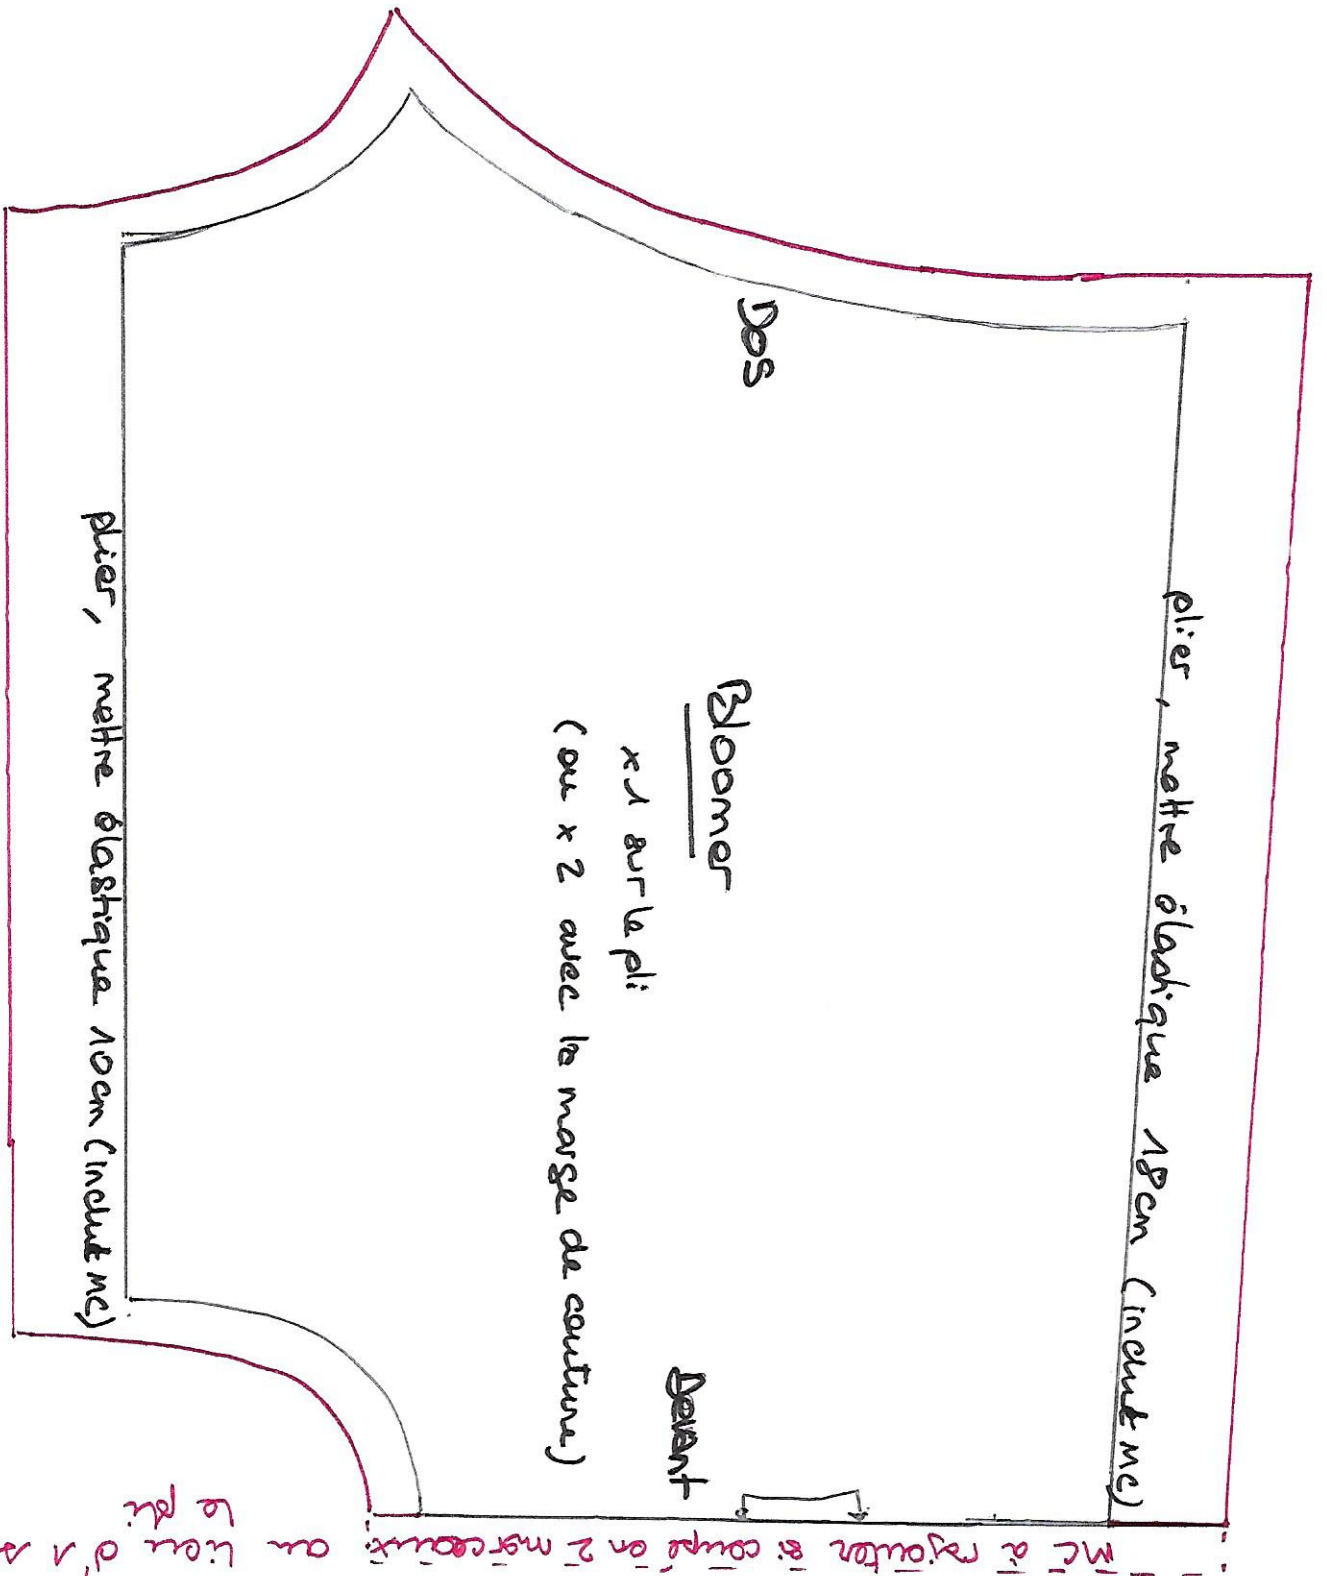 plier, mettre élastique 18cm (inclut MC)
DOS
Devant
Bloomer
x1 sur le pli
(ou x 2 avec la marge de couture)
plier, mettre élastique 10cm (inclut MC)
MC à rajouter si coupé en 2 morceaux au lieu d'1 s
le pli